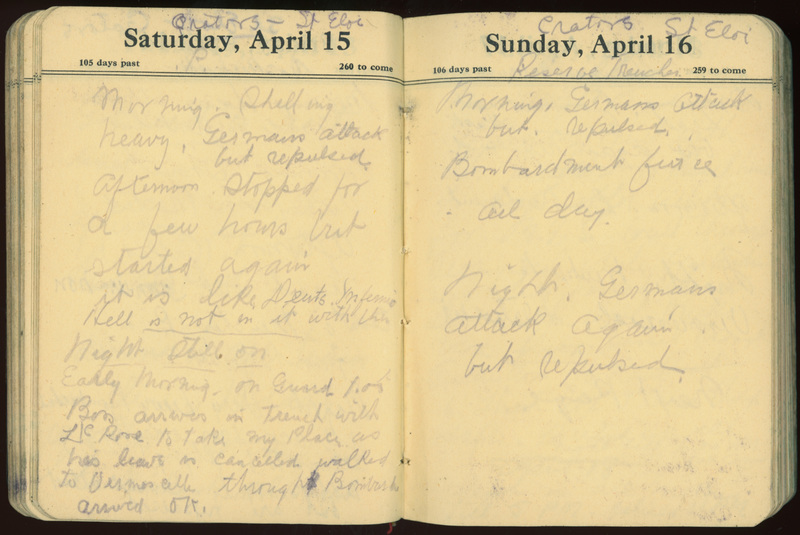 Craters - St Eloi
Saturday, April 15
105 days past 260 to come
P.
Morning. Shelling
heavy, Germans attack
but repulsed.
Afternoon stopped for
a few hours but
started again
it is like Dents Inferno
Hell is not in it with this
Night still on.
Early Morning. on Guard 1.0
Boos arrives in trench with
to take my place as
his leave is cancelled walked
to through Bombard
arrived OK.
Craters St Eloi
Sunday, April 16
106 days past 259 to come
Reserve Trenches
Morning. Germans attack
but. repulsed.
Bombardment fierce
- all day.
Night. Germans
attack again.
but repulsed.